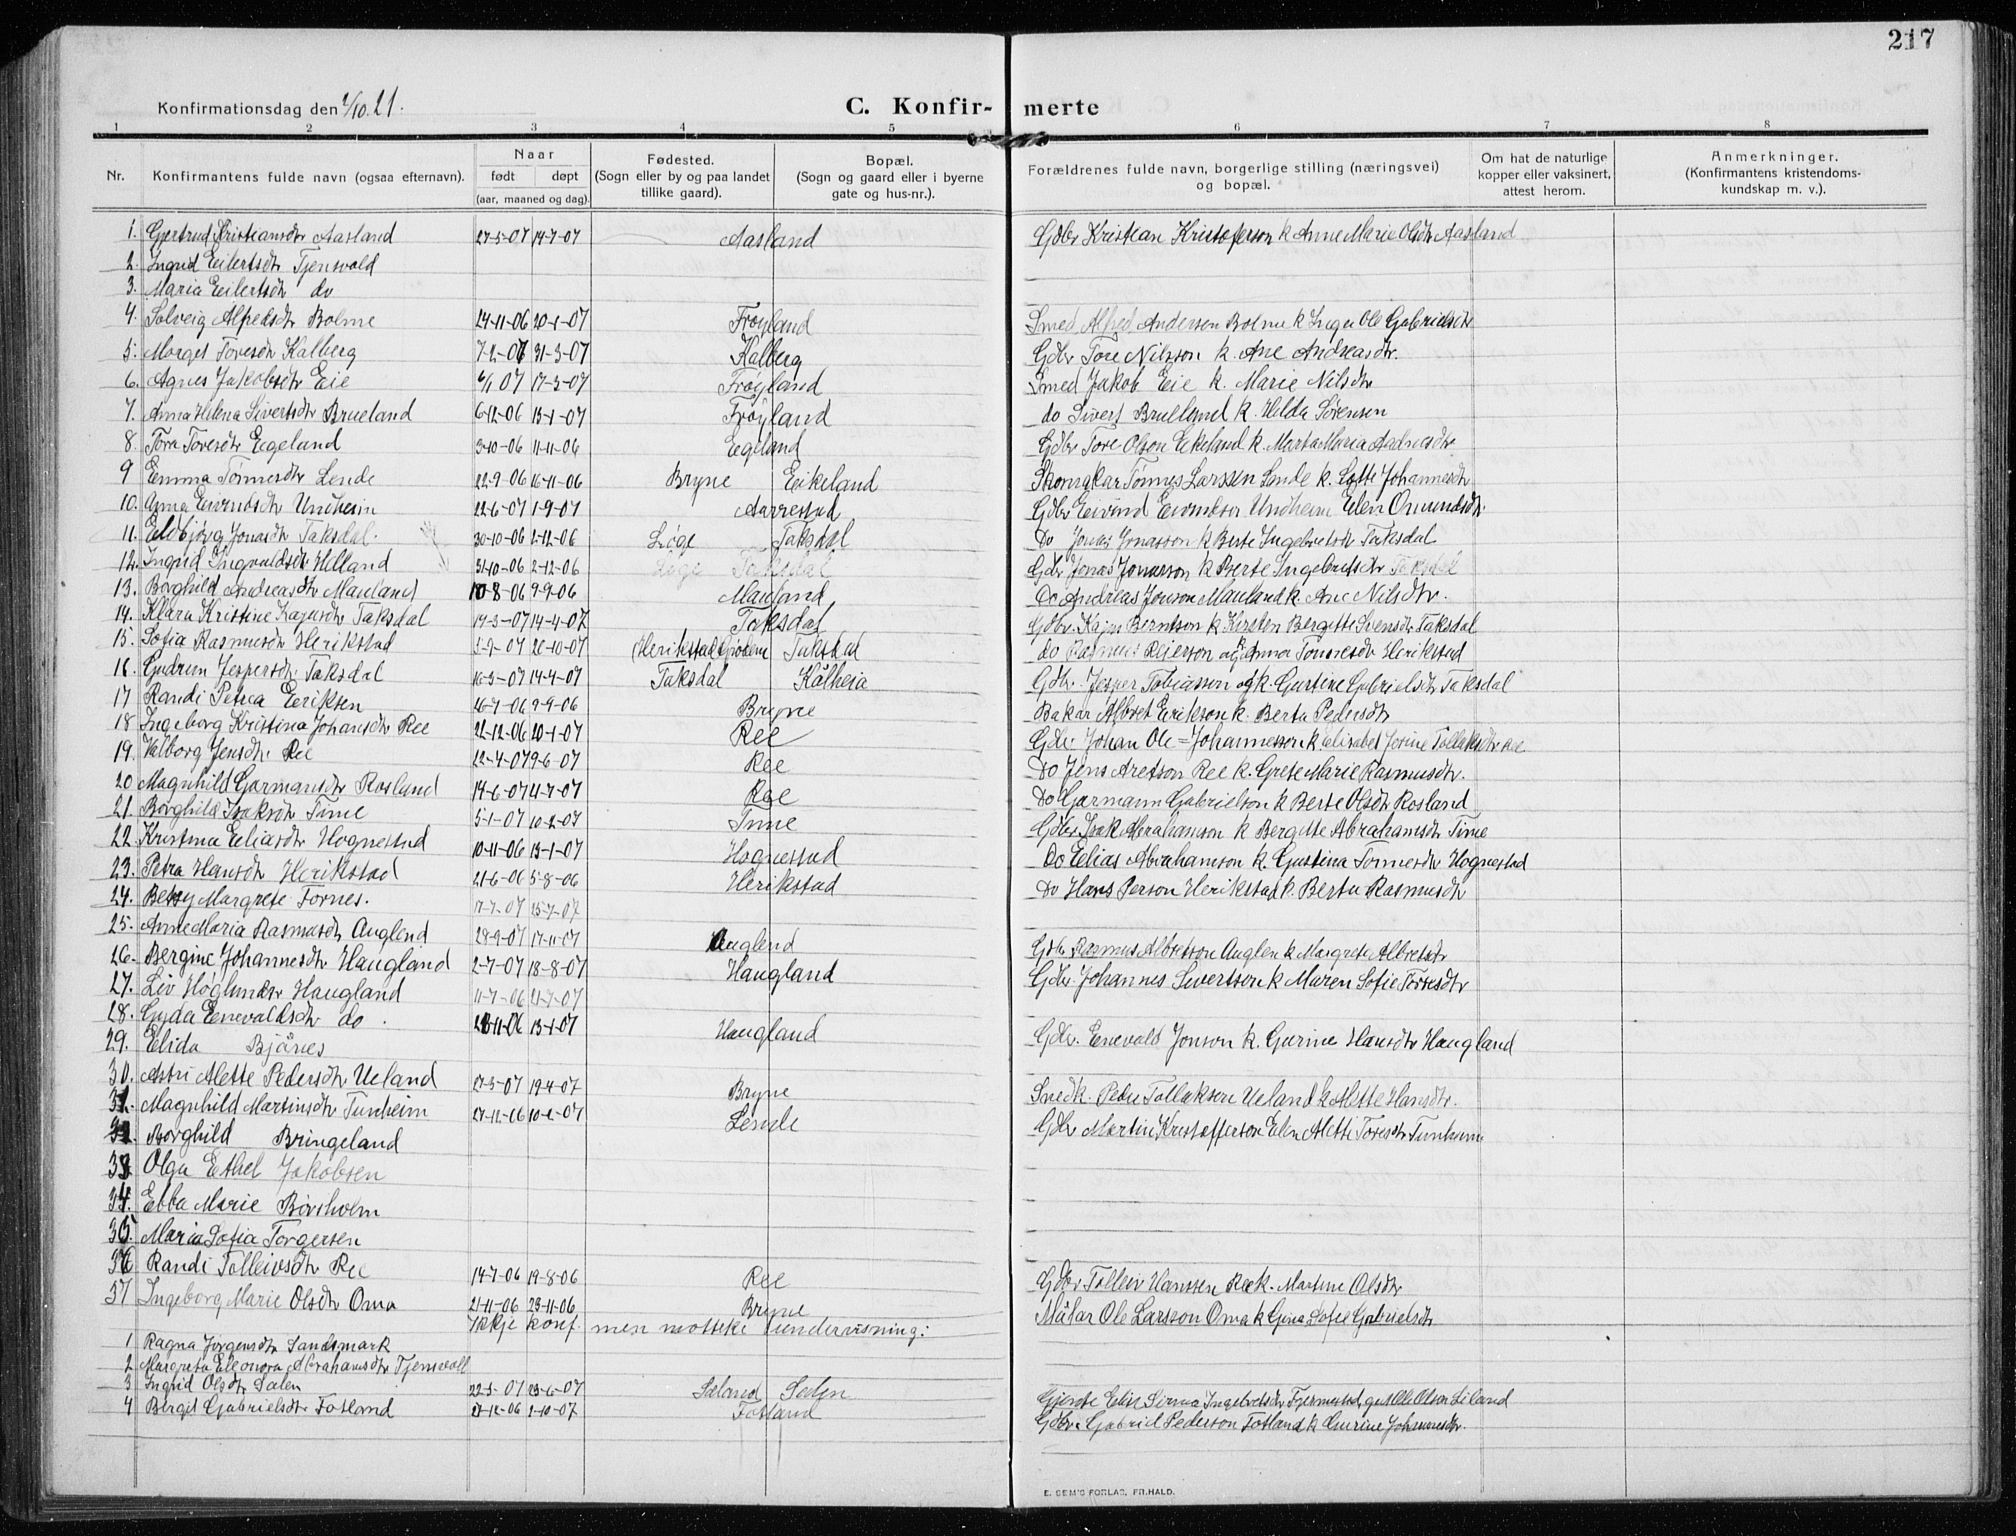 217
Konfirmationsdag den 2/10.21.
C. Konfir- merte
1 2 3 4 5 6 7 8
Nr. Konfirmantens fulde navn (ogsaa efternavn). Naar født døpt (aar, maaned og dag). Fødested. (Sogn eller by og paa landet tillike gaard). Bopæl. (Sogn og gaard eller i byerne gate og hus-nr.). Forældrenes fulde navn, borgerlige stilling (næringsvei) og bopæl. Om hat de naturlige kopper eller vaksinert, attest herom. Anmerkninger. (Konfirmantens kristendoms- kundskap m. v.).
1. Gjertrud Kristiansdtr Aasland 27-5-07 14-7-07 Aasland Gdbr Kristian Kristoferson k Anne Marie Olsdtr Aasland
2. Ingrid Eilertsdtr Tjensvold
3. Maria Eilertsdtr do
4. Solveig Alfredsdtr Bolme 24-11-06 20-1-07 Frøyland Smed Alfred Anderson Bolme k Inger Ole Gabrielsdtr
5. Marget Toresdtr Kalberg 7-2-07 31-3-07 Kalberg Gdbr Tore Nilsson k. Ane Andreasdtr.
6. Agnes Jakobsdtr Eie 6/1 07 17-3-07 Frøyland Smed Jakob Eie k. Marie Nilsdtr
7. Anna Helena Sivertsdtr Brueland 6-12-06 13-1-07 Frøyland do Sivert Brueland k. Hilda Sørensen
8. Tora Toresdtr Eegeland 3-10-06 11-11-06 Eegeland Gdbr Tore Olson Eikeland k. Marta Maria Andreasdtr
9 Emma Tønnesdtr Lende 22-9-06 16-11-06 Bryne Eikeland Skomakar Tønnes Larssen Lende k. Lotte Johannesdtr
10. Anna Eivindsdtr Undheim 22-6-07 1-9-07 Aarrestad Gdbr Eivind Eivindson Undheim Elen Omundsdtr.
11. Eldbjørg Jonasdtr Taksdal. 30-10-06 2-12-06 Løge Taksdal Do Jonas Jonasson k Berte Ingebretsdtr Taksdal
12. Ingrid Ingvaldsdtr Helland 31-10-06 2-12-06 Løge Taksdal Gdbr Jonas Jonasson k Berte Ingebretsdtr Taksdal
13. Borghild Andreasdtr Mauland 10-8-06 9-9-06 Mauland Do Andreas Jonson Mauland k. Ane Nilsdtr.
14. Klara Kristine Kajusdtr Taksdal 14-3-07 14-4-07 Taksdal Gdbr. Kajus Berntson k Kirsten Bergitte Svensdtr Taksdal
15. Sofia Rasmusdtr Herikstad 3-9-07 20-10-07 Herikstad Taksdal do Rasmus Reierson og Anna Tønnesdtr Herikstad
16. Gudrun Jespersdtr. Taksdal 16-3-07 14-4-07 Taksdal Kålheia Gdbr. Jesper Tobiassen og k. Gustine Gabrielsdtr Taksdal
17 Randi Petrea Eeriksen 26-7-06 9-9-06 Bryne Bakar Albret Erikson k. Berta Pedersdtr
18 Ingeborg Kristina Johansdtr Ree 21-12-06 20-1-07 Ree Gdbr. Johan Ole = Johannesson k. Elisabet Josine Tollaksdtr Ree
19. Valborg Jensdtr. Ree 22-4-07 9-6-07 Ree Do Jens Aretson Ree k. Grete Marie Rasmusdtr.
20 Magnhild Garmansdtr Rosland 14-6-07 21-7-07 Ree Do Garmann Gabrielson k Berte Olsdtr Rosland
21. Borghild Isaksdtr Time 5-1-07 10-2-07 Time Gdbr Isak Abrahamson k Bergitte Abrahamsdtr Time
22. Kristina Eliasdtr Hognestad 10-11-06 13-1-07 Hognestad Do Elias Abrahamson k. Gustina Tønnesdtr Hognestad
23. Petra Hansdtr Herikstad 21-6-06 5-8-06 Herikstad Do Hans Person Herikstad k. Berta Rasmusdtr
24. Betsy Margrete Tornes. 17-7-07 25-7-07
25. Anne Maria Rasmusdtr Auglend 28-9-07 17-11-07 Auglend Gdb. Rasmus Albretson Auglen k Margrete Albretsdtr
26. Bergine Johannesdtr Haugland 2-7-07 18-8-07 Haugland Gdbr. Johannes Sivertson k Maren Sofie Toresdtr
27. Liv Høglundsdtr Haugland 11-7-06 21-7-07
28. Gyda Enevaldsdtr do. 28-11-06 13-1-07 Haugland Gdbr. Enevald Jonson k. Gurine Hansdtr Haugland
29. Elida Bjånes
30. Astri Alette Pedersdtr Ueland 17-3-07 19-4-07 Bryne Snedk. Peder Tollaksen Ueland k Alette Hansdtr.
31. Magnhild Martinsdtr Tunheim 27-12-06 10-2-07 Lende Gdbr Martin Kristofferson Elen Alette Toresdtr Tunheim
32. Borghild Bringeland
33 Olga Ethel Jakobsen
34. Ebba Marie Borsholm
35. Maria Sofia Torgersen
36 Randi Tolleivsdtr Ree 14-7-06 19-8-06 Ree Gdbr Tolleiv Hanssen Ree k. Martine Olsdtr
37 Ingeborg Marie Olsdtr Oma 21-11-06 23-11-06 Bryne Målar Ole Larsson Oma k Gina Sofie Gabrielsdtr
Ikkje konf. men mottike undervisning:
1 Ragna Jørgensdtr Sandsmark
2 Margreta Eleonora Abrahamsdtr Tjensvoll
3 Ingrid Olsdtr Salen 22-3-07 23-6-07 Sæland Salen
4 Bergit Gabrielsdtr Fotland 17-12-06 2-10-07 Fotland Gdbr. Gabriel Pederson Fotland k Gurine Johannesdtr.
E. SEM'S FORLAG, FR.HALD.